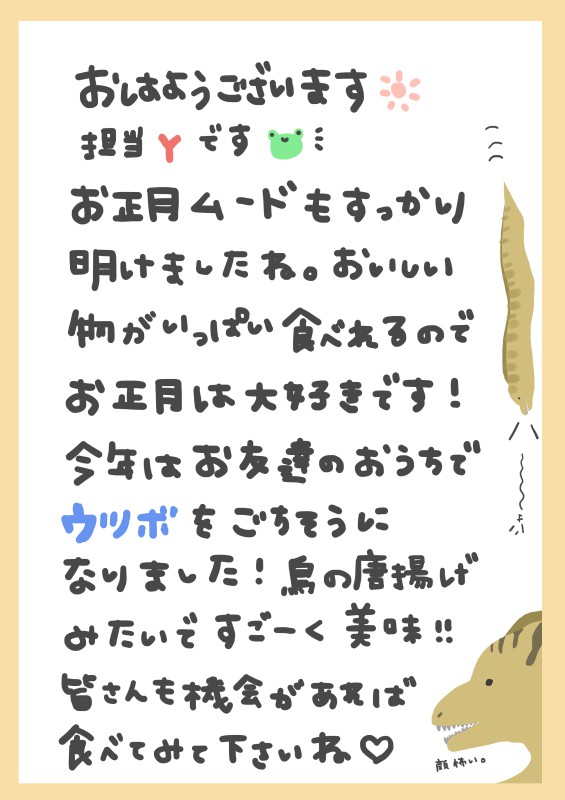 おはようございます
担当Yです
お正月ムードもすっかり
明けましたね。おいしい
物がいっぱい食べれるので
お正月は大好きです！
今年はお友達のおうちで
ウツボをごちそうに
なりました！鳥の唐揚げ
みたいですごーく美味!!
皆さんも機会があれば
食べてみて下さいね♡
顔怖い。